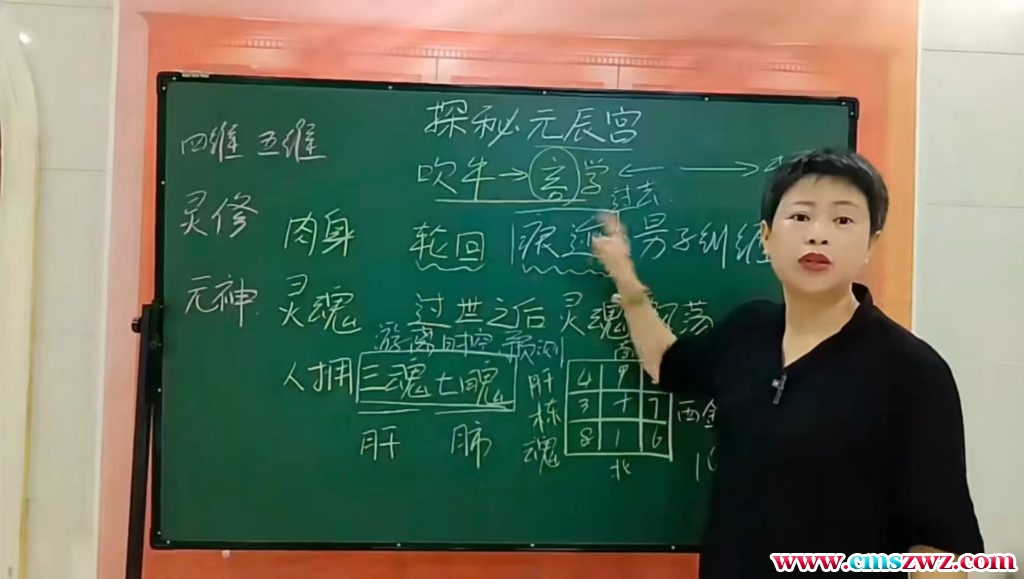 探秘元辰宫
四维 五维
吹牛→玄学← →
过去
灵修
肉身 轮回 量子纠缠
元神
灵魂 过世之后 灵魂飘荡
游离时空 预测
人拥 三魂七魄
肝 肺
肝
魂
南
4 9
3 7
8 1 6
西金
北
www.cmszwz.com